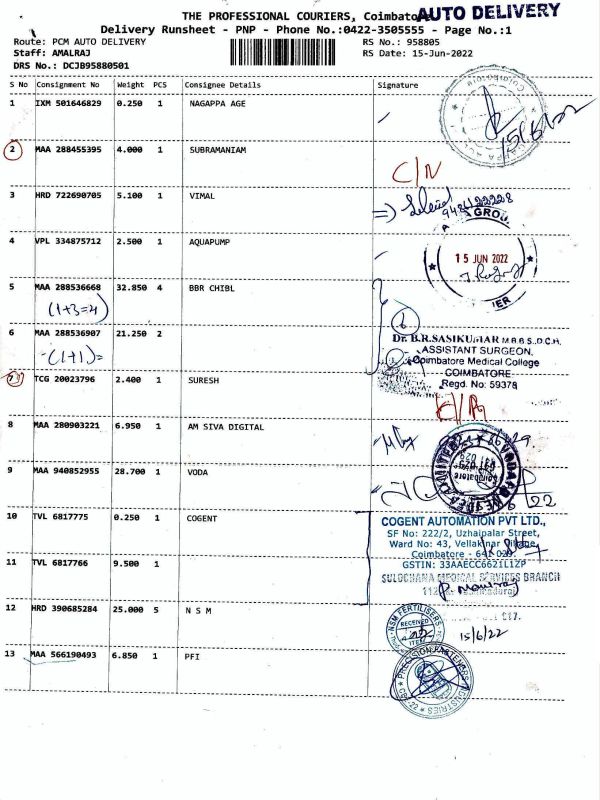 THE PROFESSIONAL COURIERS, Coimbatore AUTO DELIVERY
Delivery Runsheet - PNP - Phone No.:0422-3505555 - Page No.:1
Route: PCM AUTO DELIVERY RS No.: 958805
Staff: AMALRAJ RS Date: 15-Jun-2022
DRS No.: DCJB95880501
S No Consignment No Weight PCS Consignee Details Signature
1 IXM 501646829 0.250 1 NAGAPPA AGE
15/6/22
2 MAA 288455395 4.000 1 SUBRAMANIAM
C/N
3 HRD 722690705 5.100 1 VIMAL
GROU
4 VPL 334875712 2.500 1 AQUAPUMP
15 JUN 2022
5 MAA 288536668 32.850 4 BBR CHIBL
(1+3=4)
6
6 MAA 288536907 21.250 2
(1+1)=
Dr. B.R.SASIKUMAR M.B.B.S.,D.C.H.
ASSISTANT SURGEON,
Coimbatore Medical College
COIMBATORE
Regd. No: 59378
7 TCG 20023796 2.400 1 SURESH
8 MAA 280903221 6.950 1 AM SIVA DIGITAL
9 MAA 940852955 28.700 1 VODA
10 TVL 6817775 0.250 1 COGENT
COGENT AUTOMATION PVT LTD.,
SF No: 222/2, Uzhaipalar Street,
Ward No: 43, Vellakinar Village,
Coimbatore - 641 029.
GSTIN: 33AAECC6621L1ZP
11 TVL 6817766 9.500 1
SULOCHANA MEDICAL SERVICES BRANCH
12 HRD 390685284 25.000 5 N S M
NSM FERTILISERS
RECEIVED
15/6/22
13 MAA 566190493 6.850 1 PFI
PRECISION FASTENERS INDUSTRIES